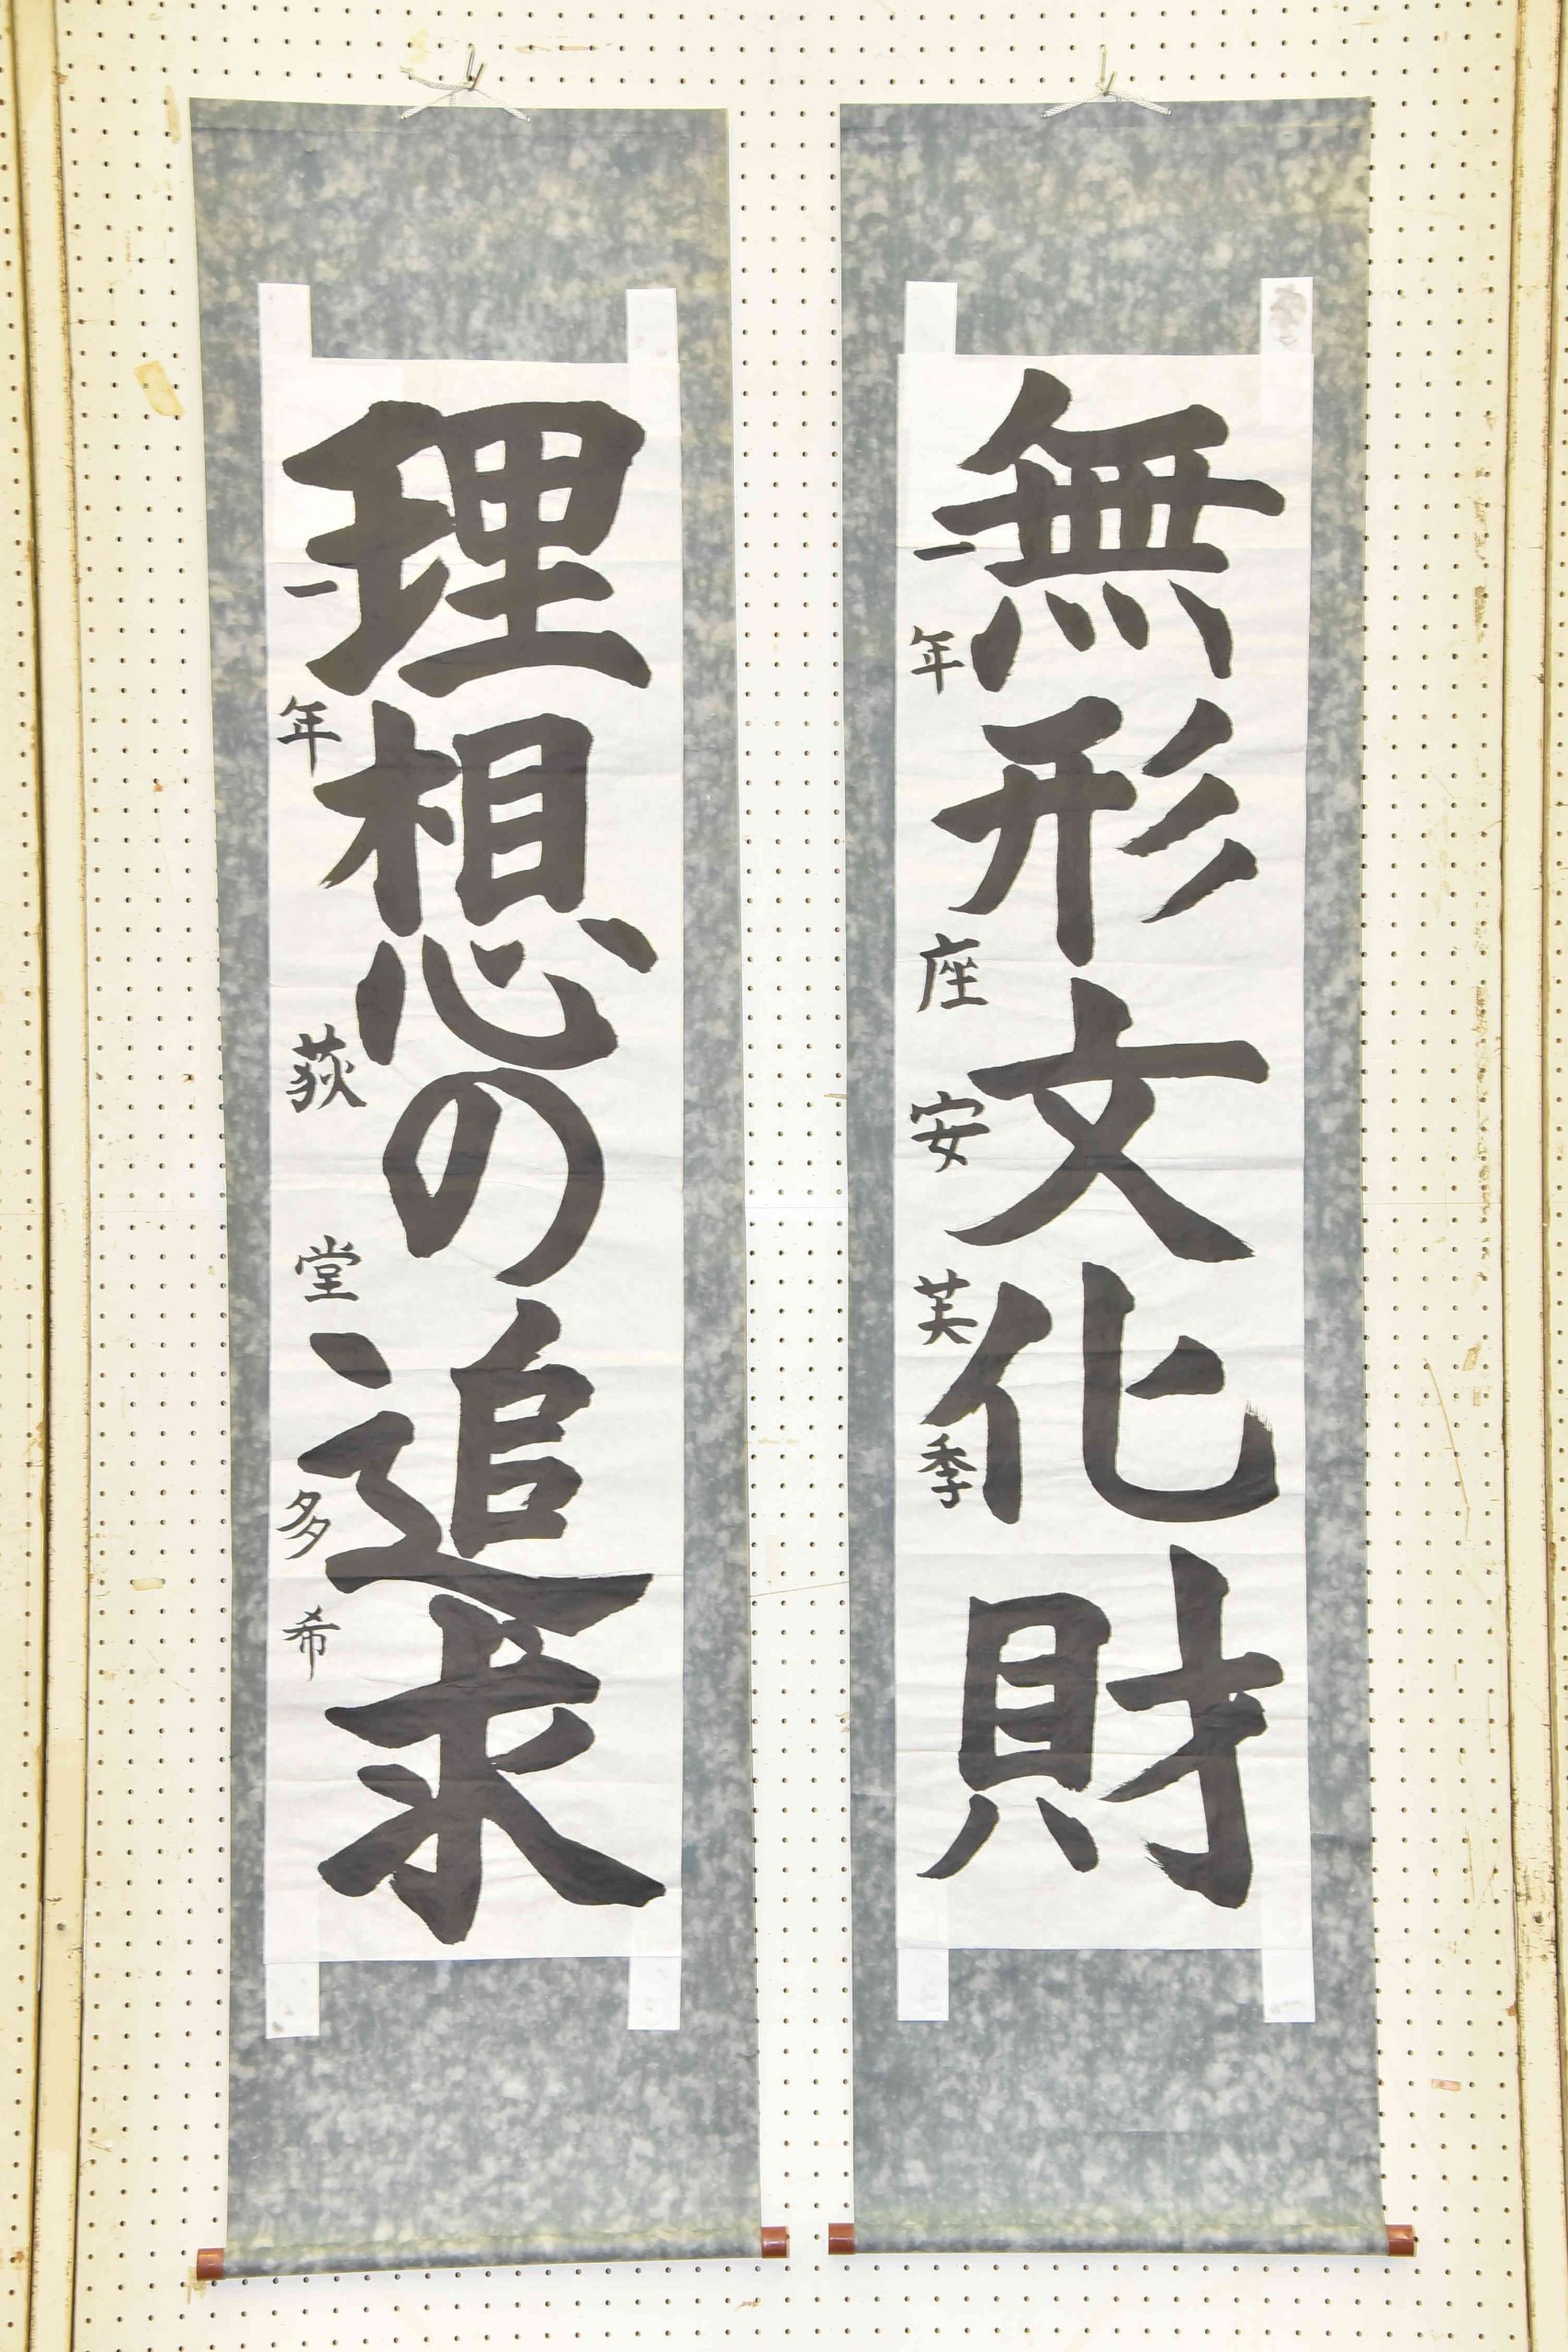 無形文化財
一年 座安芙季
理想の追求
一年 荻堂多希